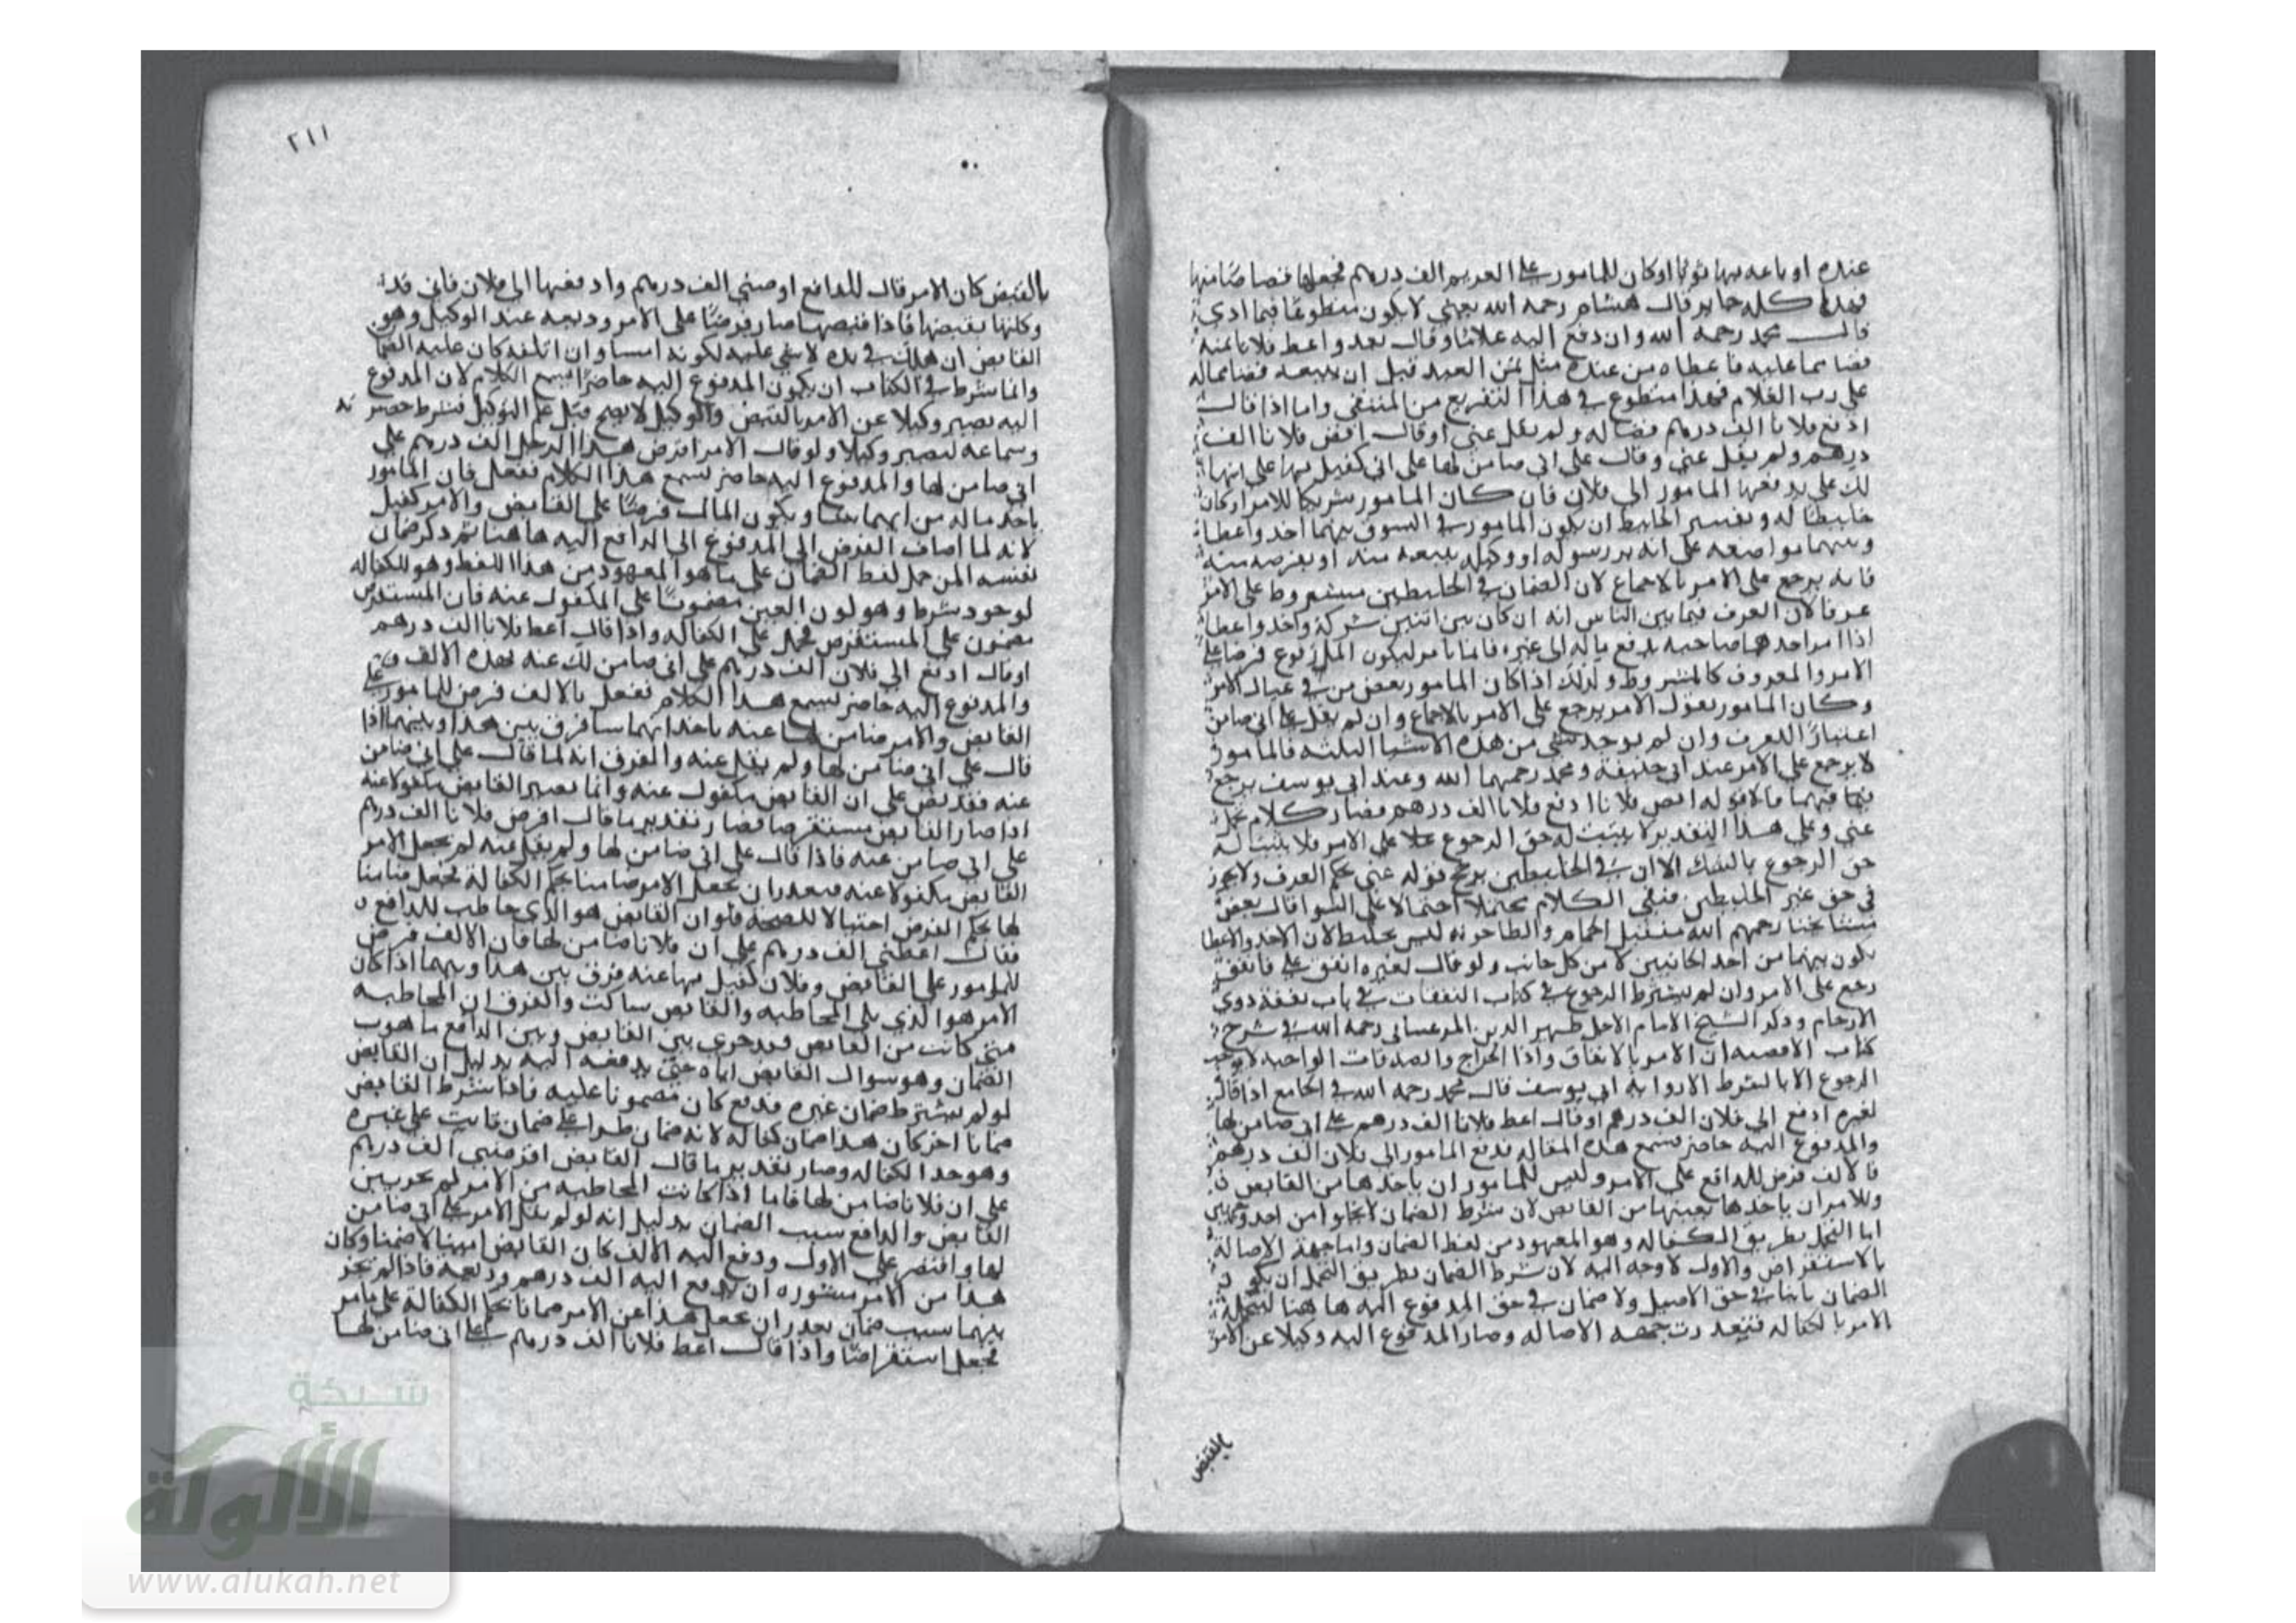 عنده او باعه بها ثوبا او كان للمامور على الغريم الف درهم فجعلها قصاصا منها
فهذا كله جايز قال هشام رحمه الله يعني لا يكون متطوعا فيما ادى
قال محمد رحمه الله وان دفع اليه غلاما وقال بعه واعط فلانا ثمنه
قضا بما عليه فاعطاه من عنده مثل ثمن العبد قبل ان يبيعه قضا بماله
على رب الغلام فهذا متطوع في هذا التفريع من المنتقى واما اذا قال
ادفع فلانا الف درهم قضا له ولم يقل عني او قال اقض فلانا الف
درهم ولم يقل عني وقال على اني ضامن لها على اني كفيل بها على انها
لك علي يدفعها المامور الى فلان فان كان المامور شريكا للامر او كان
خليطا له وتفسير الخليط ان يكون المامور في السوق بينهما اخذ واعطا
وبينهما مواضعه على انه ير رسوله او وكيله يبيعه منه او يقرضه منه
فانه يرجع على الامر بالاجماع لان الضمان في الخليطين مشروط على الامر
عرفا لان العرف فيما بين الناس انه ان كان بين اثنين شركة واخذ واعطا
اذا امر احدهما صاحبه بدفع ماله الى غيره فانما يامر ليكون المدفوع قرضا على
الامر والمعروف كالمشروط ولذلك اذا كان المامور بعض من في عيال الامر
وكان المامور يعول الامر يرجع على الامر بالاجماع وان لم يقل على اني ضامن
اعتبارا للعرف وان لم يوجد شي من هذه الاشيا الثلثه فالمامور
لا يرجع على الامر عند ابي حنيفة ومحمد رحمهما الله وعند ابي يوسف يرجع
فيما فيهما ما لا قوله اقض فلانا ادفع فلانا الف درهم فصار كلام محمل
عني وعلى هذا التقدير لا يثبت له حق الرجوع علا على الامر فلا يثبت له
حق الرجوع بالشك الا ان في الخليطين يرجح قوله عني بحكم العرف ولا يجوز
في حق غير الخليطين فبقي الكلام محتملا احتمالا على السوا قال بعض
مشايخنا رحمهم الله مستقبل الحمام والطاحونه ليس بخليط لان الاخذ والاعطا
يكون بينهما من احد الجانبين لا من كل جانب ولو قال لغيره انفق علي فانفق
رجع على الامر وان لم يشترط الرجوع في كتاب النفقات في باب نفقة ذوي
الارحام وذكر الشيخ الامام الاجل ظهير الدين المرغيناني رحمه الله في شرح
كتاب الاقضيه ان الامر بالانفاق واذا الخراج والصدقات الواجبه لا يوجب
الرجوع الا بالشرط الا رواية ابي يوسف قال محمد رحمه الله في الجامع اذا قال
لغيره ادفع الى فلان الف درهم او قال اعط فلانا الف درهم على اني ضامن لها
والمدفوع اليه حاضر يسمع هذه المقاله فدفع المامور الى فلان الف درهم
فالالف قرض للدافع على الامر وليس للمامور ان ياخذها من القابض
وللامر ان ياخذها بعينها من القابض لان شرط الضمان لا يخلوا من احد وجهين
اما التحمل بطريق الكفاله وهو المعهود من لفظ الضمان واما جهة الاصاله
بالاستقراض والاول لا وجه اليه لان شرط الضمان بطريق التحمل ان يكون
الضمان ثابتا في حق الاصيل ولا ضمان في حق المدفوع اليه هاهنا ليتحمله
الامر بالكفاله فتعذرت جهه الاصاله وصار المدفوع اليه وكيلا عن الامر
بالقبض
٢١١
بالقبض كان الامر قال للدافع اقرضني الف درهم وادفعها الى فلان فاني قد
وكلته بقبضها فاذا قبضها صار قرضا على الامر وديعه عند الوكيل وهو
القابض ان هلك في يده لا شي عليه لكونه امينا وان اتلفه كان عليه الضمان
وانما شرط في الكتاب ان يكون المدفوع اليه حاضرا يسمع الكلام لان المدفوع
اليه يصير وكيلا عن الامر بالقبض والوكيل لا يصح قبل علم التوكيل فشرط حضرته
وسماعه ليصير وكيلا ولو قال الامر اقرض هذا الرجل الف درهم على
اني ضامن لها والمدفوع اليه حاضر يسمع هذا الكلام ففعل فان المامور
ياخذ ماله من ايهما شا ويكون المال قرضا على القابض والامر كفيل
لانه لما اضاف القرض الى المدفوع الى الدافع اليه هاهنا ثم ذكر ضمان
نفسه المن حمل لفظ الضمان على ما هو المعهود من هذا اللفظ وهو للكفاله
لوجود شرطه وهو لون العين مضمونا على المكفول عنه فان المستقرض
مضمون على المستقرض فحمل على الكفاله واذا قال اعط فلانا الف درهم
او قال ادفع الى فلان الف درهم على اني ضامن لك عنه بهذه الالف
والمدفوع اليه حاضر يسمع هذا الكلام ففعل بالالف قرض للمامور على
القابض والامر ضامن لها عنه ياخذ ايهما شا فرق بين هذا وبينهما اذا
قال على اني ضامن لها ولم يقل عنه والفرق انه لما قال على اني ضامن
عنه فقد نص على ان القابض مكفول عنه وانما يصير القابض مكفولا عنه
اذا صار القابض مستقرضا فصار تقدير ما قال اقرض فلانا الف درهم
على اني ضامن عنه فاذا قال على اني ضامن لها ولم يقل عنه لم يجعل الامر
القابض مكفولا عنه فتعذر ان يجعل الامر ضامنا بحكم الكفالة فجعل ضامنا
لها بحكم القرض احتيالا للصحة فلو ان القابض هو الذي خاطب للدافع
فقال اعطني الف درهم على ان فلانا ضامن لها فان الالف قرض
للمامور على القابض وفلان كفيل بها عنه فرق بين هذا وبينهما اذا كان
الامر هو الذي يلي المخاطبه والقابض ساكت والفرق ان المخاطبه
متى كانت من القابض فقد جرى بين القابض وبين الدافع ما هو
الضمان وهو سوال القابض اياه حتى يدفعه اليه بدليل ان القابض
لو لم يشترط ضمان غيره فدفع كان مضمونا عليه فاذا شرط القابض
ضمانا اخر كان هذا ضمان كفاله لانه ضمان طرا على ضمان ثابت على غيره
وهو حد الكفاله وصار تقدير ما قال القابض اقرضني الف درهم
على ان فلانا ضامن لها فاما اذا كانت المخاطبه من الامر لم يجر بين
القابض والدافع سبب الضمان بدليل انه لو لم يقل الامر على اني ضامن
لها واقتصر على الاول ودفع اليه الالف كان القابض امينا لا ضمينا وكان
هذا من الامر مشوره ان يدفع اليه الف درهم وديعة فاذا لم يجر
بينهما سبب ضمان تعذر ان يجعل هذا عن الامر ضمانا بحكم الكفالة على ما مر
فجعل استقراضا واذا قال اعط فلانا الف درهم على اني ضامن لها
شبكة
الألوكة
www.alukah.net